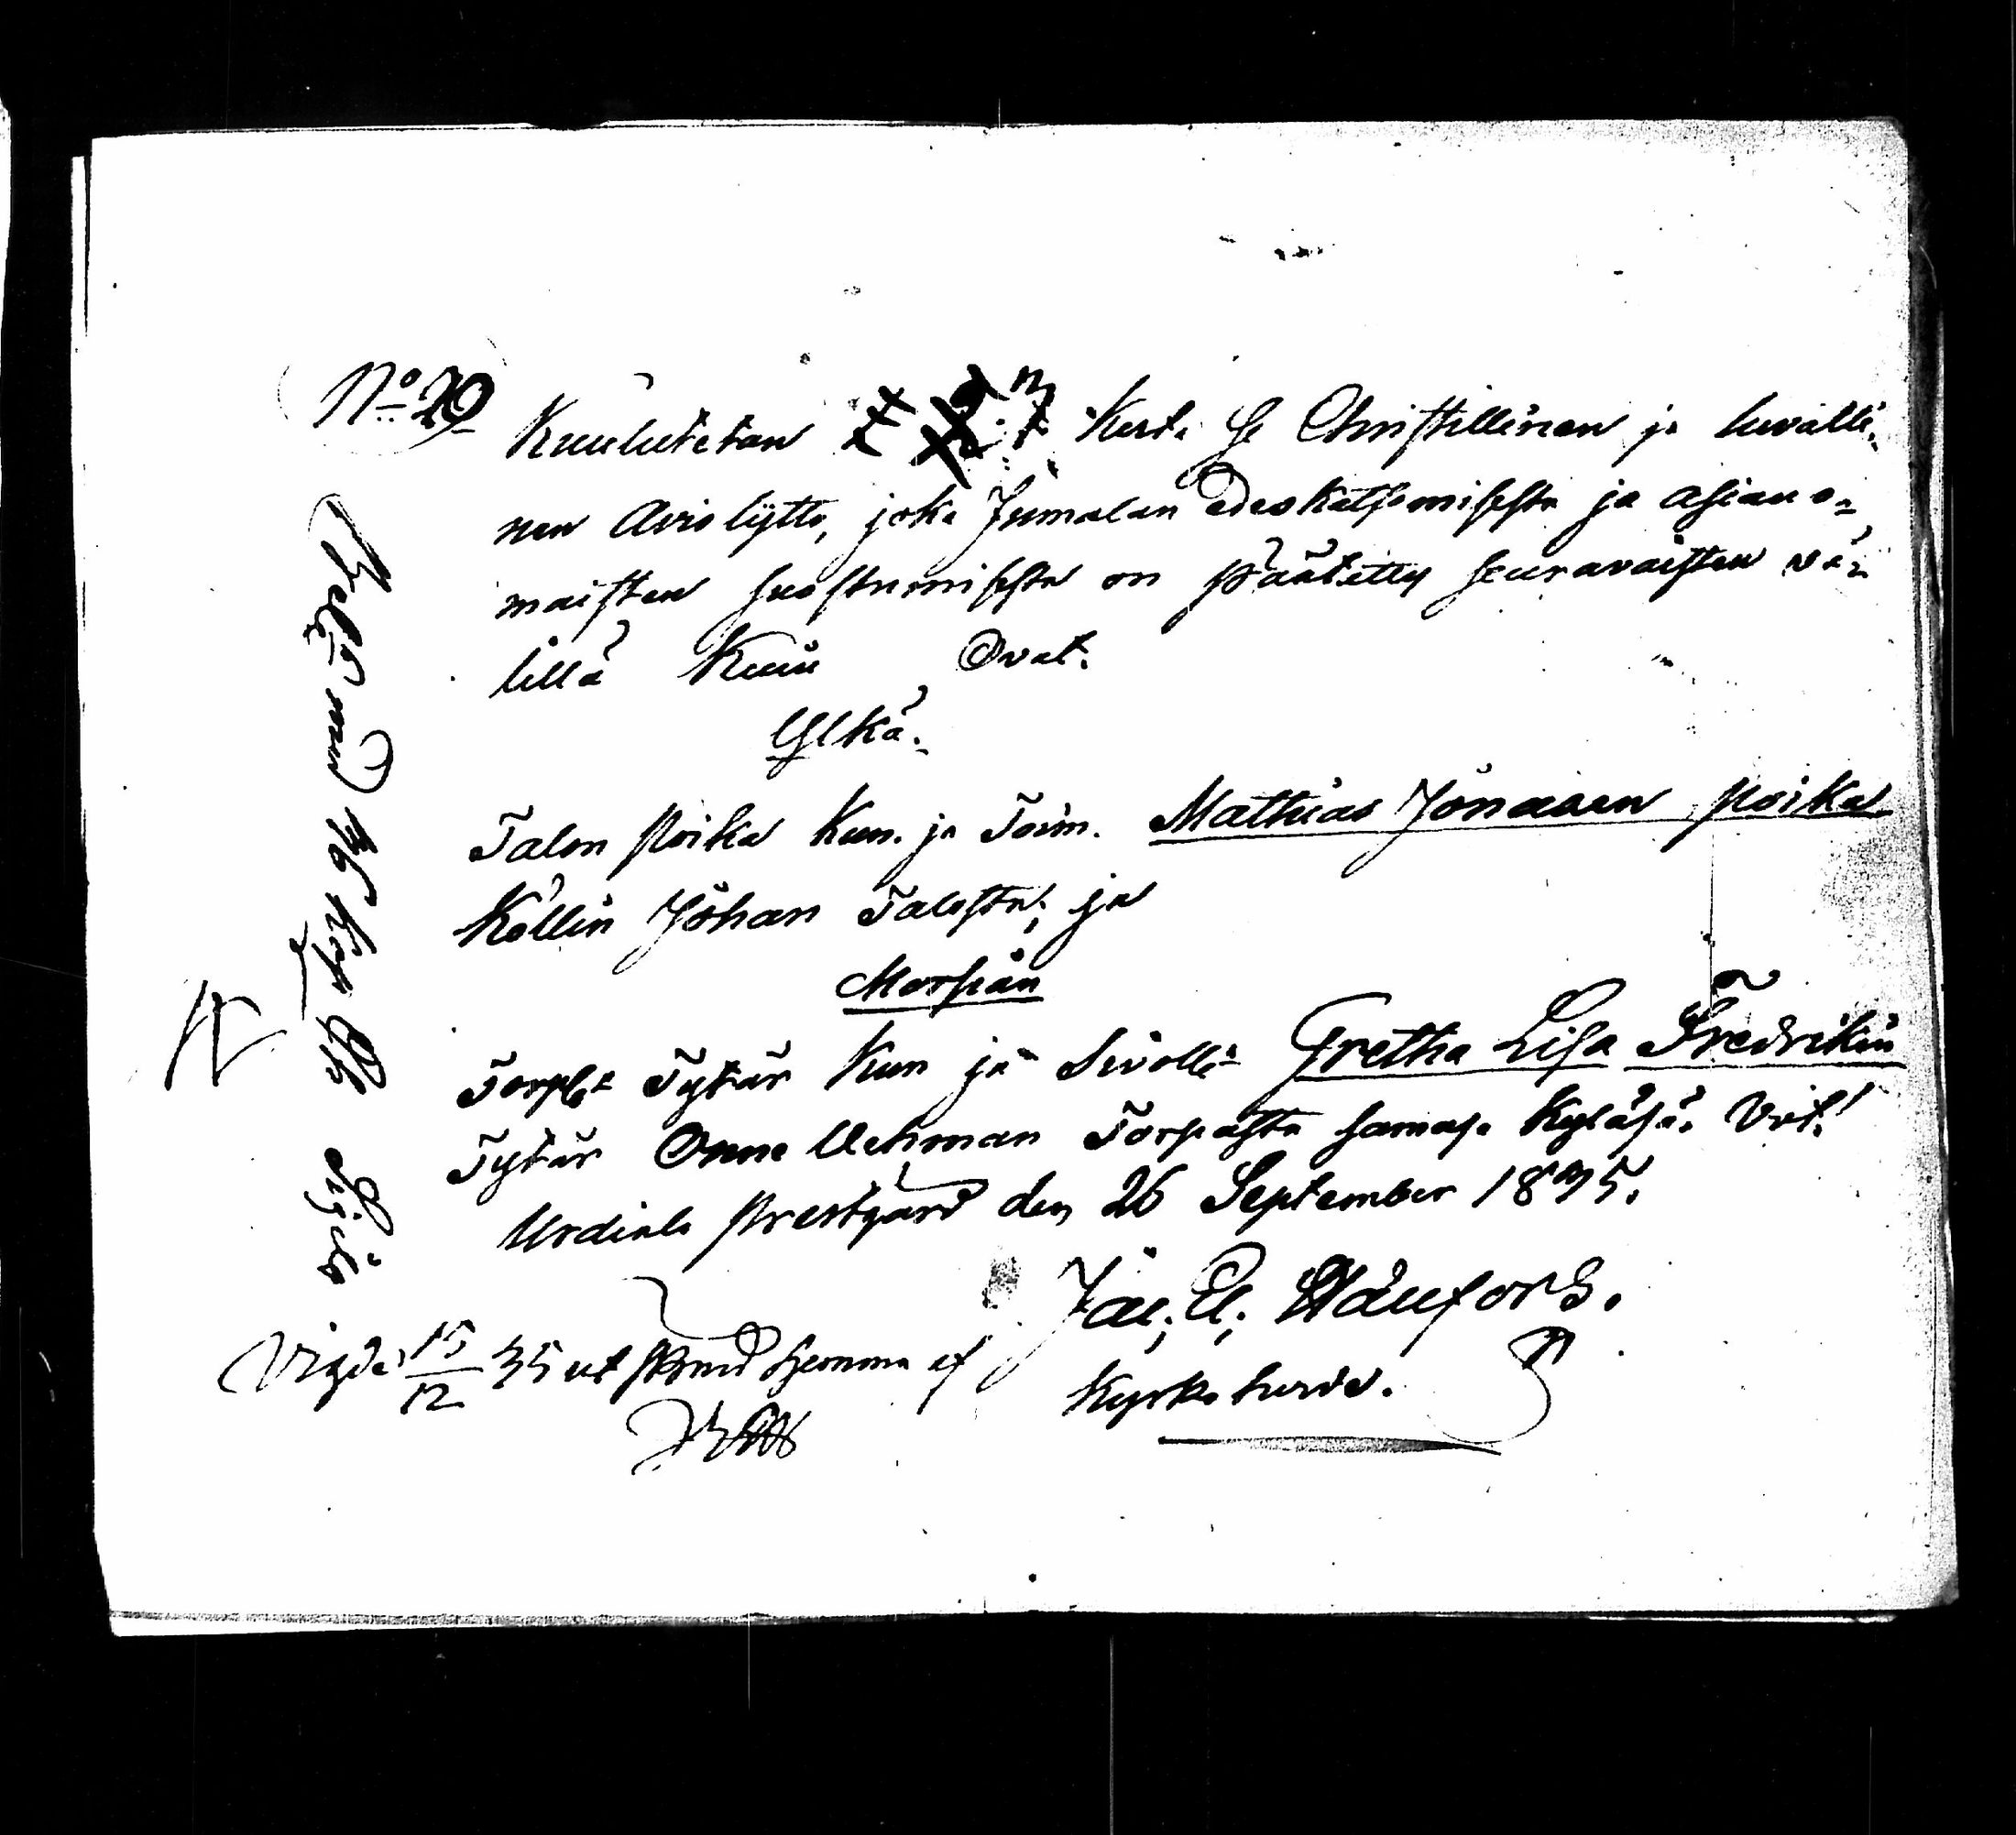 No 29
Kuulutetan Kert. se Christillinen ja luvalli-
nen Avioliitto, joka Jumalan Edeskatsomisesta ja asiano-
maisten suostumisesta on päätetty seuravaisten vä-
lillä Kuin Ovat.
Ylkä.
Talon Poika Kun. ja Toim. Mathias Johanen poika
Köllin Johan Talosta; ja
Morsian
Torp. Tytär Kun ja Sivolli- Gretha Lisa Fredrikin
Tytär Onne Uehman Torpasta samasa Kyläsä. Vrt!
Urdiala Prestgård den 26 September 1835.
Jac. Ståufors.
Kyrkoherde.
Vigde 15/12 35 ut hemma af